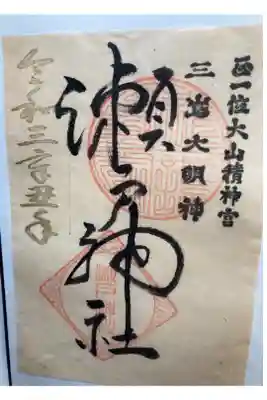 正一位大山積神宮
三島大明神
瀬戸神社
令和三辛丑年